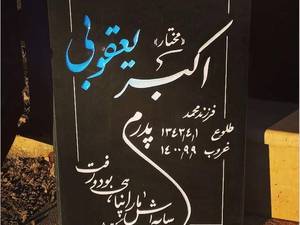 «مختار»
اکبر یعقوبی
فرزند محمد
طلوع ۱۳۴۳/۴/۱
غروب ۱۴۰۰/۹/۹
پدرم
سایه‌اش ما را پناهی بود و رفت